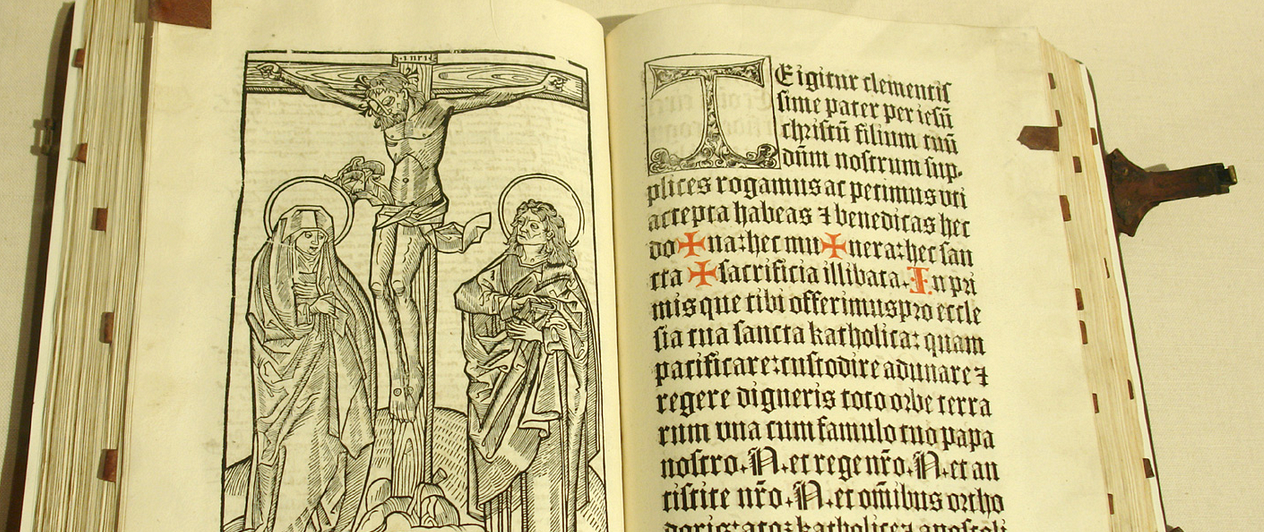 INRI
TE igitur clementis
sime pater per iesū
christū filium tuū
dūm nostrum sup-
plices rogamus ac petimus vti
accepta habeas ⁊ benedicas hec
do✠na: hec mu✠nera: hec san
cta ✠ sacrificia illibata. In pri
mis que tibi offerimus pro eccle
sia tua sancta katholica: quam
pacificare: custodire adunare ⁊
regere digneris toto orbe terra
rum vna cum famulo tuo papa
nostro. N. et rege nr̄o. N. et an
tistite nr̄o. N. et om̄ibus ortho
doxis: atqȝ katholice ⁊ apostoli